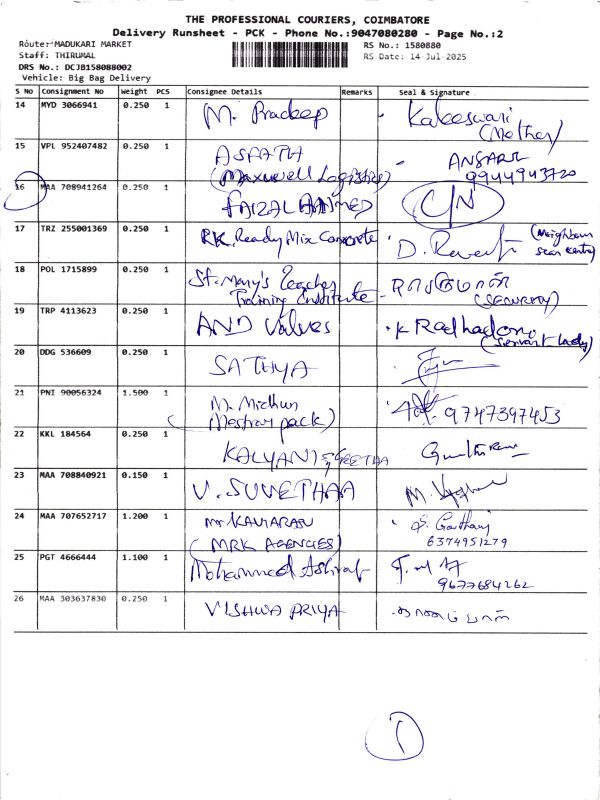 THE PROFESSIONAL COURIERS, COIMBATORE
Delivery Runsheet - PCK - Phone No.:9047080280 - Page No.:2
Route: MADUKARI MARKET
Staff: THIRUMAL
DRS No.: DCJB158088002
Vehicle: Big Bag Delivery
Barcode Details
RS No.: 1580880
RS Date: 14-Jul-2025
S No Consignment No Weight PCS Consignee Details Remarks Seal & Signature
14 MYD 3066941 0.250 1 M. Pradeep Kaleeswari
(Mother)
15 VPL 952407482 0.250 1 ASFATH ANSARI
(Maxwell Logistics) 9944943720
16 MAA 708941264 0.250 1 FAIZAL AHMED C/N
17 TRZ 255001369 0.250 1 RK. Ready Mix Concrete D. (Neighbour
18 POL 1715899 0.250 1 St. Mary's Teacher
Training Institute - (SECURITY)
19 TRP 4113623 0.250 1 AND Valves K
(Servant lady)
20 DDG 536609 0.250 1 SATHYA
21 PNI 90056324 1.500 1 M. Midhun 9747397453
(Mestray pack)
22 KKL 184564 0.250 1 KALYANI & GEETHA
23 MAA 708840921 0.150 1 V. SUVETHAA M.
24 MAA 707652717 1.200 1 Mr. S.
(MRK AGENCIES) 6374951279
25 PGT 4666444 1.100 1 Mohammed Ashraf
9677684262
26 MAA 303637830 0.250 1 VISHWA PRIYA
1